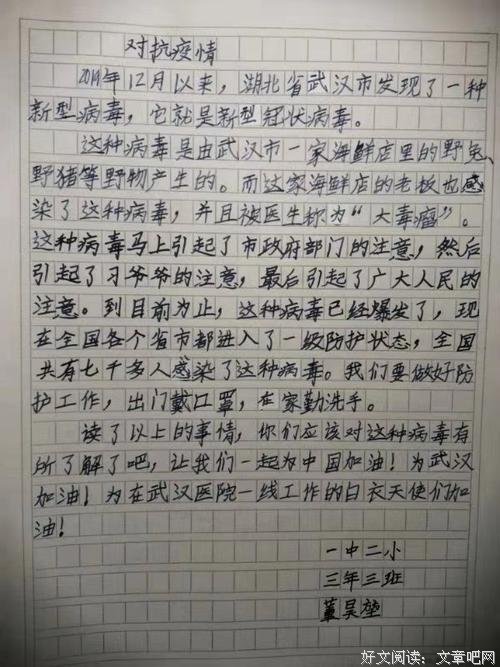 对抗疫情
2019年12月以来，湖北省武汉市发现了一种
新型病毒，它就是新型冠状病毒。
这种病毒是由武汉市一家海鲜店里的野兔
野猪等野物产生的。而这家海鲜店的老板也感
染了这种病毒，并且被医生称为“大毒瘤”。
这种病毒马上引起了市政府部门的注意，然后
引起了习爷爷的注意，最后引起了广大人民的
注意。到目前为止，这种病毒已经爆发了，现
在全国各个省市都进入了一级防护状态，全国
共有七千多人感染了这种病毒。我们要做好防
护工作，出门戴口罩，在家勤洗手。
读了以上的事情，你们应该对这种病毒有
所了解了吧，让我们一起为中国加油！为武汉
加油！为在武汉医院一线工作的白衣天使们加
油！
一中二小
三年三班
董昊堃
好文阅读：文章吧网